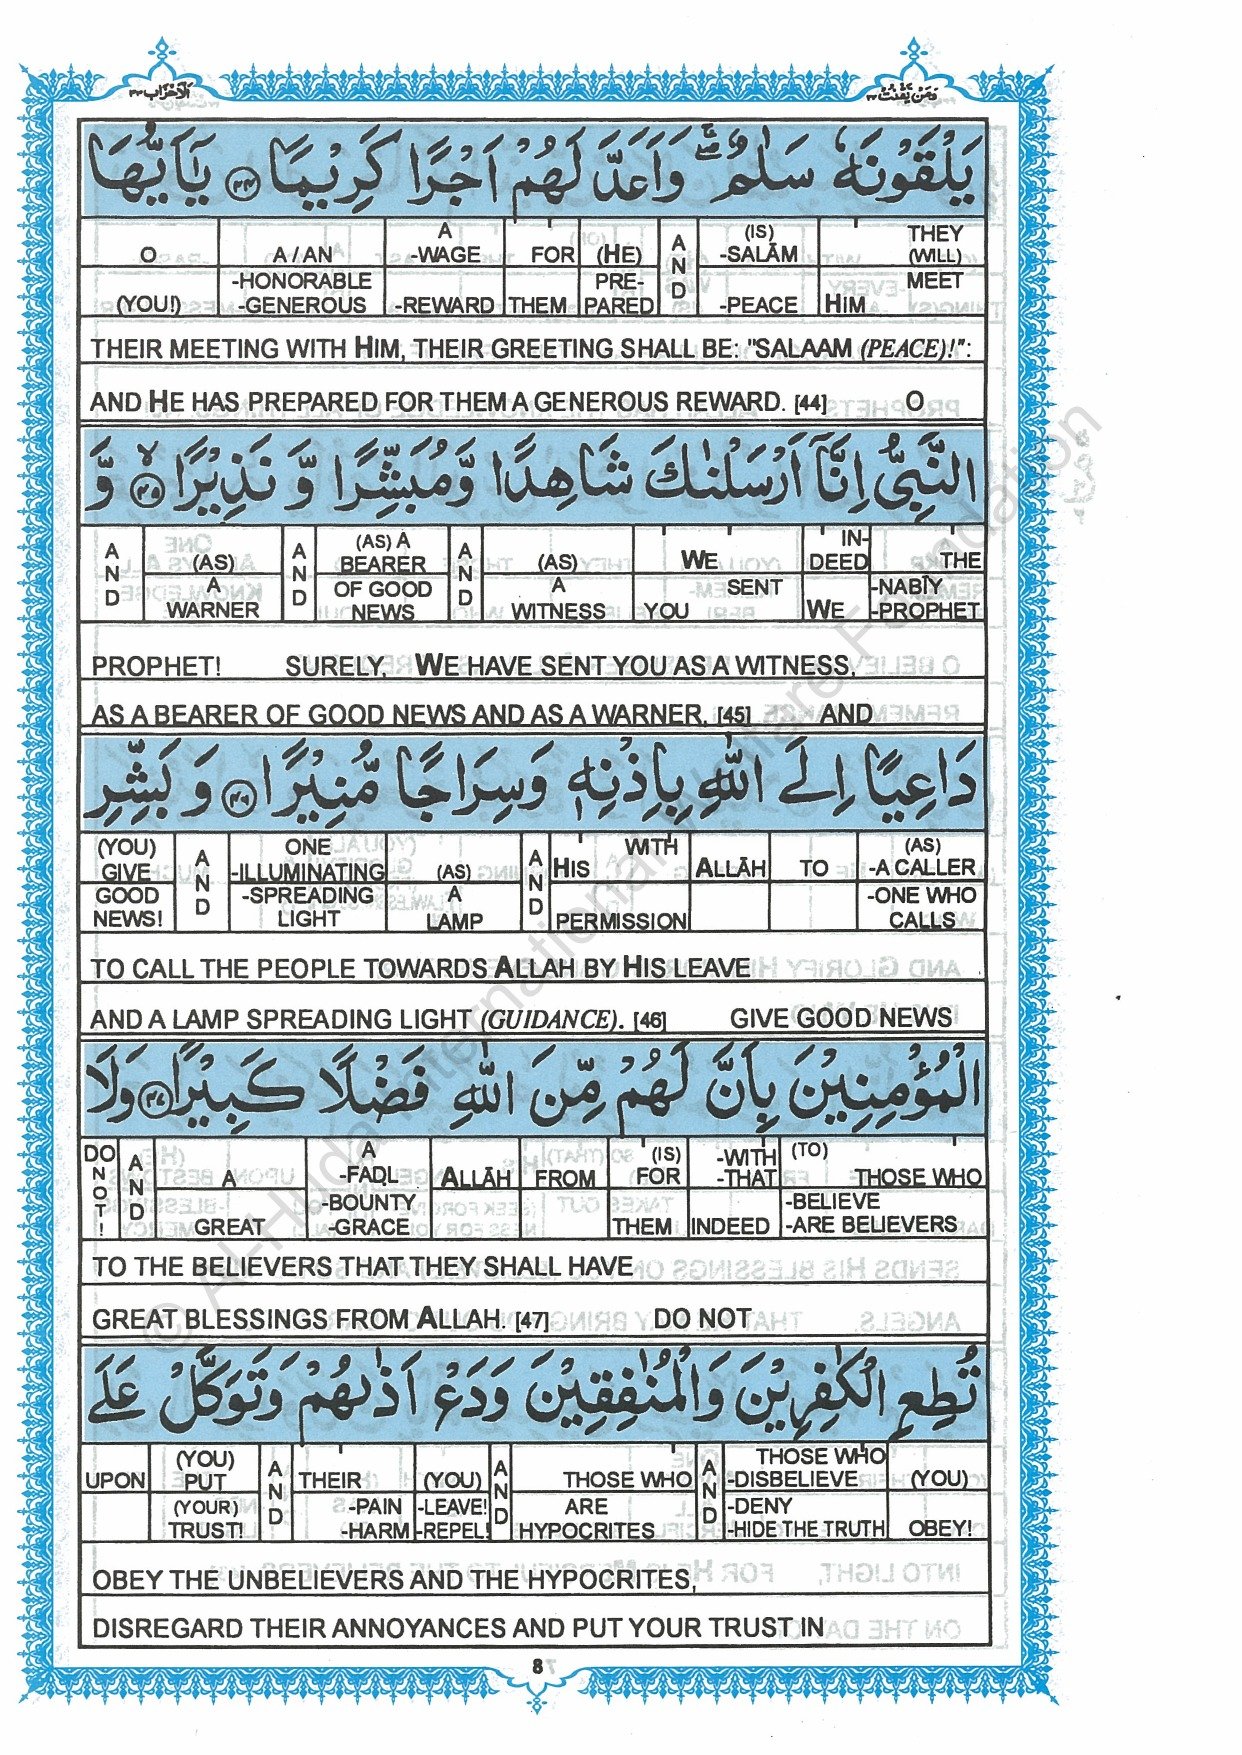 وَمَنْ يَّقْنُتْ ٢٢
اَلْاَحْزَاب ٣٣
يَلْقَوْنَهٗ سَلٰمٌ ۖۚ وَاَعَدَّ لَهُمْ اَجْرًا كَرِيْمًا ﴿٤٤﴾ يٰٓاَيُّهَا
O A/AN A -WAGE FOR (HE) AND (IS) -SALĀM THEY (WILL)
(YOU!) -HONORABLE -GENEROUS -REWARD THEM PRE- PARED -PEACE HIM MEET
THEIR MEETING WITH HIM, THEIR GREETING SHALL BE: "SALAAM (PEACE)!":
AND HE HAS PREPARED FOR THEM A GENEROUS REWARD. [44] O
النَّبِىُّ اِنَّاۤ اَرْسَلْنٰكَ شَاهِدًا وَّمُبَشِّرًا وَّ نَذِيْرًا ﴿٤٥﴾ۙ وَّ
AND (AS) AND (AS) A BEARER AND (AS) WE IN- DEED THE
A WARNER OF GOOD NEWS A WITNESS YOU SENT WE -NABĪY -PROPHET
PROPHET! SURELY, WE HAVE SENT YOU AS A WITNESS,
AS A BEARER OF GOOD NEWS AND AS A WARNER. [45] AND
دَاعِيًا اِلَى اللّٰهِ بِاِذْنِهٖ وَسِرَاجًا مُّنِيْرًا ﴿٤٦﴾ وَ بَشِّرِ
(YOU) GIVE AND ONE -ILLUMINATING (AS) AND HIS WITH ALLĀH TO (AS) -A CALLER
GOOD NEWS! -SPREADING LIGHT A LAMP PERMISSION -ONE WHO CALLS
TO CALL THE PEOPLE TOWARDS ALLAH BY HIS LEAVE
AND A LAMP SPREADING LIGHT (GUIDANCE). [46] GIVE GOOD NEWS
الْمُؤْمِنِيْنَ بِاَنَّ لَهُمْ مِّنَ اللّٰهِ فَضْلًا كَبِيْرًا ﴿٤٧﴾ وَلَا
DO NOT! AND A A -FAḌL ALLĀH FROM (IS) FOR -WITH -THAT (TO) THOSE WHO
GREAT -BOUNTY -GRACE THEM INDEED -BELIEVE -ARE BELIEVERS
TO THE BELIEVERS THAT THEY SHALL HAVE
GREAT BLESSINGS FROM ALLAH. [47] DO NOT
تُطِعِ الْكٰفِرِيْنَ وَالْمُنٰفِقِيْنَ وَدَعْ اَذٰىهُمْ وَتَوَكَّلْ عَلَى
UPON (YOU) PUT AND THEIR (YOU) AND THOSE WHO AND THOSE WHO -DISBELIEVE (YOU)
(YOUR) TRUST! -PAIN -HARM -LEAVE! -REPEL! ARE HYPOCRITES -DENY -HIDE THE TRUTH OBEY!
OBEY THE UNBELIEVERS AND THE HYPOCRITES,
DISREGARD THEIR ANNOYANCES AND PUT YOUR TRUST IN
8
© Al-Huda International Welfare Foundation